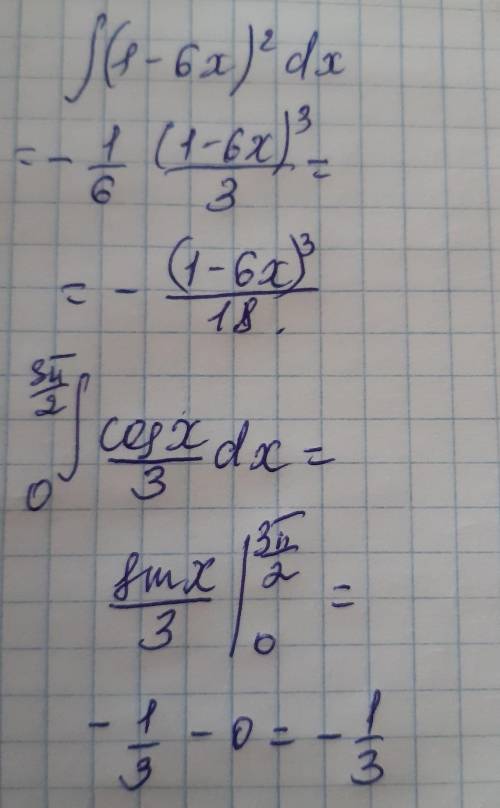 ∫(1-6x)² dx
= - 1/6 (1-6x)³/3 =
= - (1-6x)³/18.
∫₀^(3π/2) cos x/3 dx =
sin x/3 |₀^(3π/2) =
- 1/3 - 0 = - 1/3